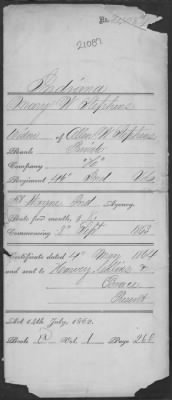 21087
Indiana
Mary W. Stephens
Widow of Allen W. Stephens
Rank Private
Company "G"
Regiment 44" Ind Vols
Ft Wayne Ind Agency.
Rate per month, $8.
Commencing 8" Sept 1863
Certificate dated 4" 1864
and sent to
Present
Act 14th July, 1862.
Book Vol. 1 Page 268